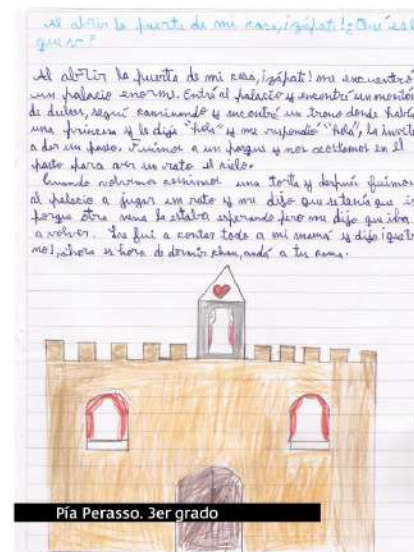 Al abrir la puerta de mi casa, ¡zápat! ¿Qué es l
que v?
Al abrir la puerta de mi casa, ¡zápat! me encuentro
un palacio enorme. Entré al palacio y encontré un montón
de dulces, seguí caminando y encontré un trono donde había
una princesa y le dije "hola" y me respondió "hola", la invité
a dar un paseo. Fuimos a un parque y nos acostamos en el
pasto para ver un rato el cielo.
Cuando volvimos cocinamos una torta y después fuimos
al palacio a jugar un rato y me dijo que se tenía que ir
porque otra nena la estaba esperando pero me dijo que iba
a volver. Le fui a contar todo a mi mamá y dijo ¡que
no!, ahora es hora de dormir chau, andá a tu cama.
Pía Perasso. 3er grado